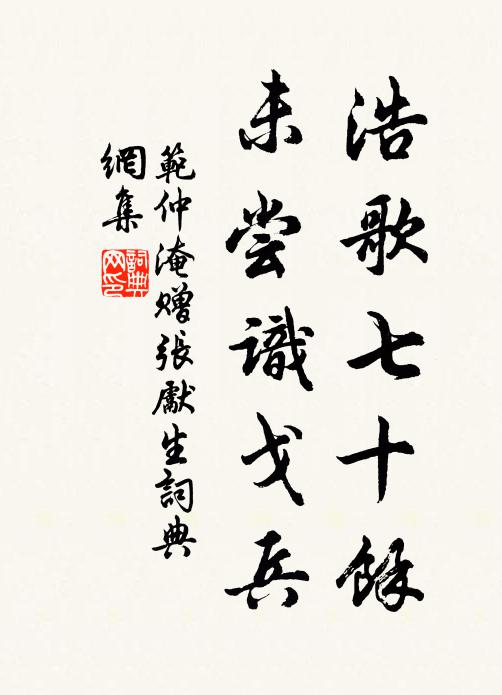 浩歌七十餘
未尝識戈兵
範仲淹贈張獻生詞典
網集
詞典
网印